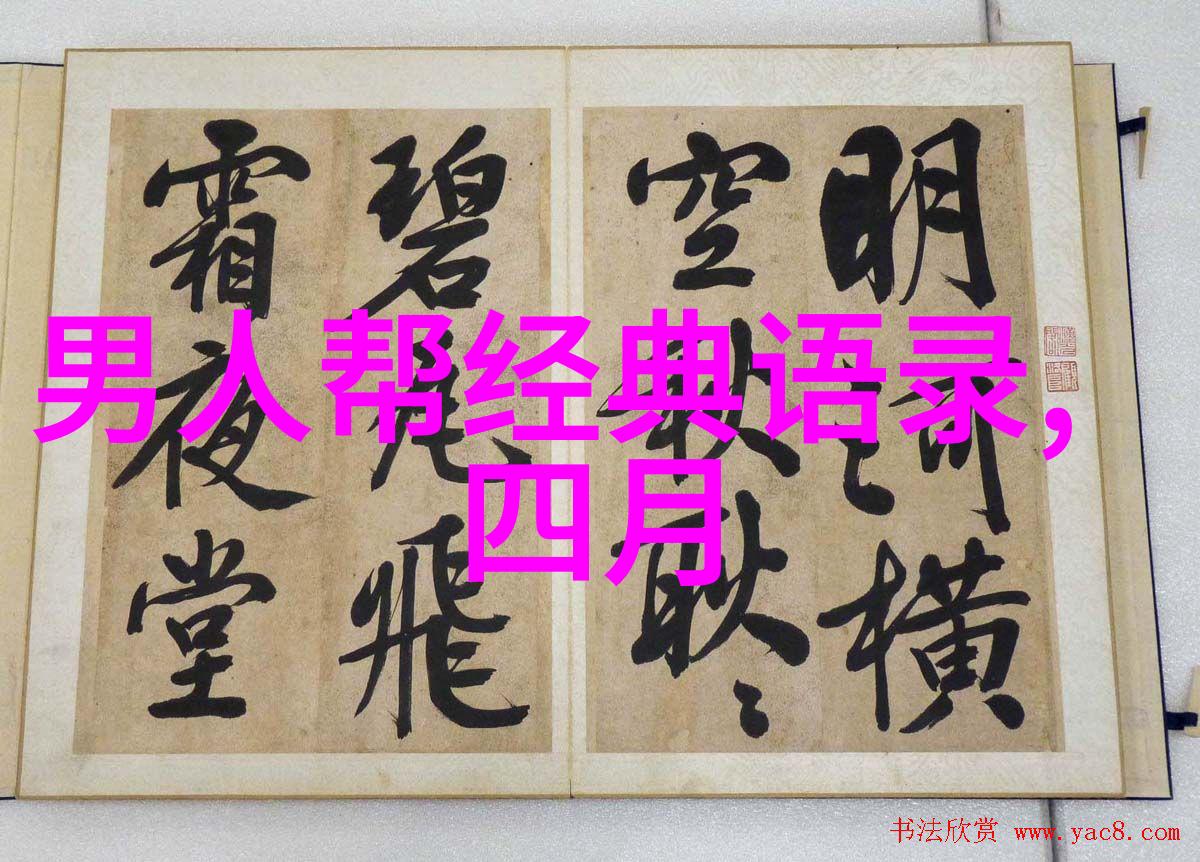 男人帮经典语录,
四月
明河横
空秋耿〻
碧瓦飛
霜夜堂
书法欣赏 www.yac8.com